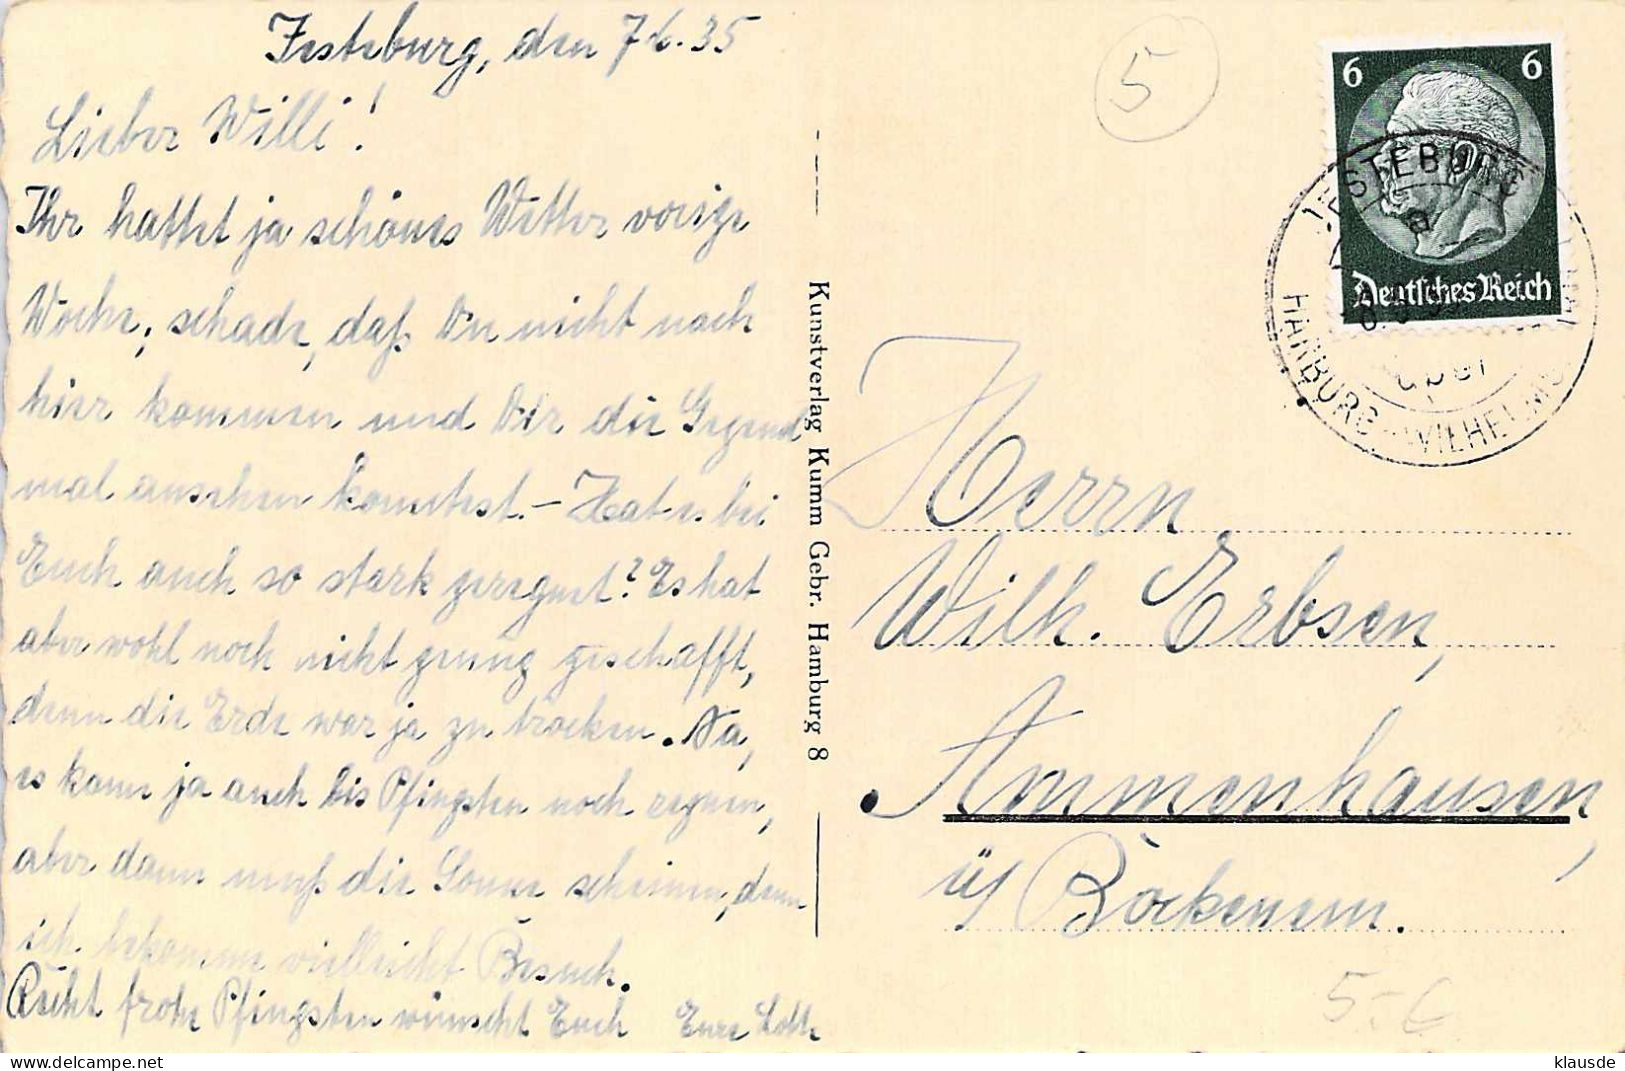 Jesteburg, den 7.6.35
Lieber Willi!
Ihr hattet ja schönes Wetter vorige
Woche, schade, daß Du nicht nach
hier kommen und Dir die Gegend
mal ansehen konntest. – Hat es bei
Euch auch so stark geregnet? Es hat
aber wohl noch nicht genug geschafft,
denn die Erde war ja zu trocken. Na,
es kann ja auch bis Pfingsten noch regnen,
aber dann muß die Sonne scheinen, denn
ich bekomme vielleicht Besuch.
Recht frohe Pfingsten wünscht Euch Eure Lotte
Kunstverlag Kumm Gebr. Hamburg 8
5
6 6
Deutsches Reich
JESTEBURG
a
über
HARBURG-WILHELMS
Herrn
Wilh. Erbsen,
Ammenhausen,
ü/ Bockenem.
5.-6
klausde